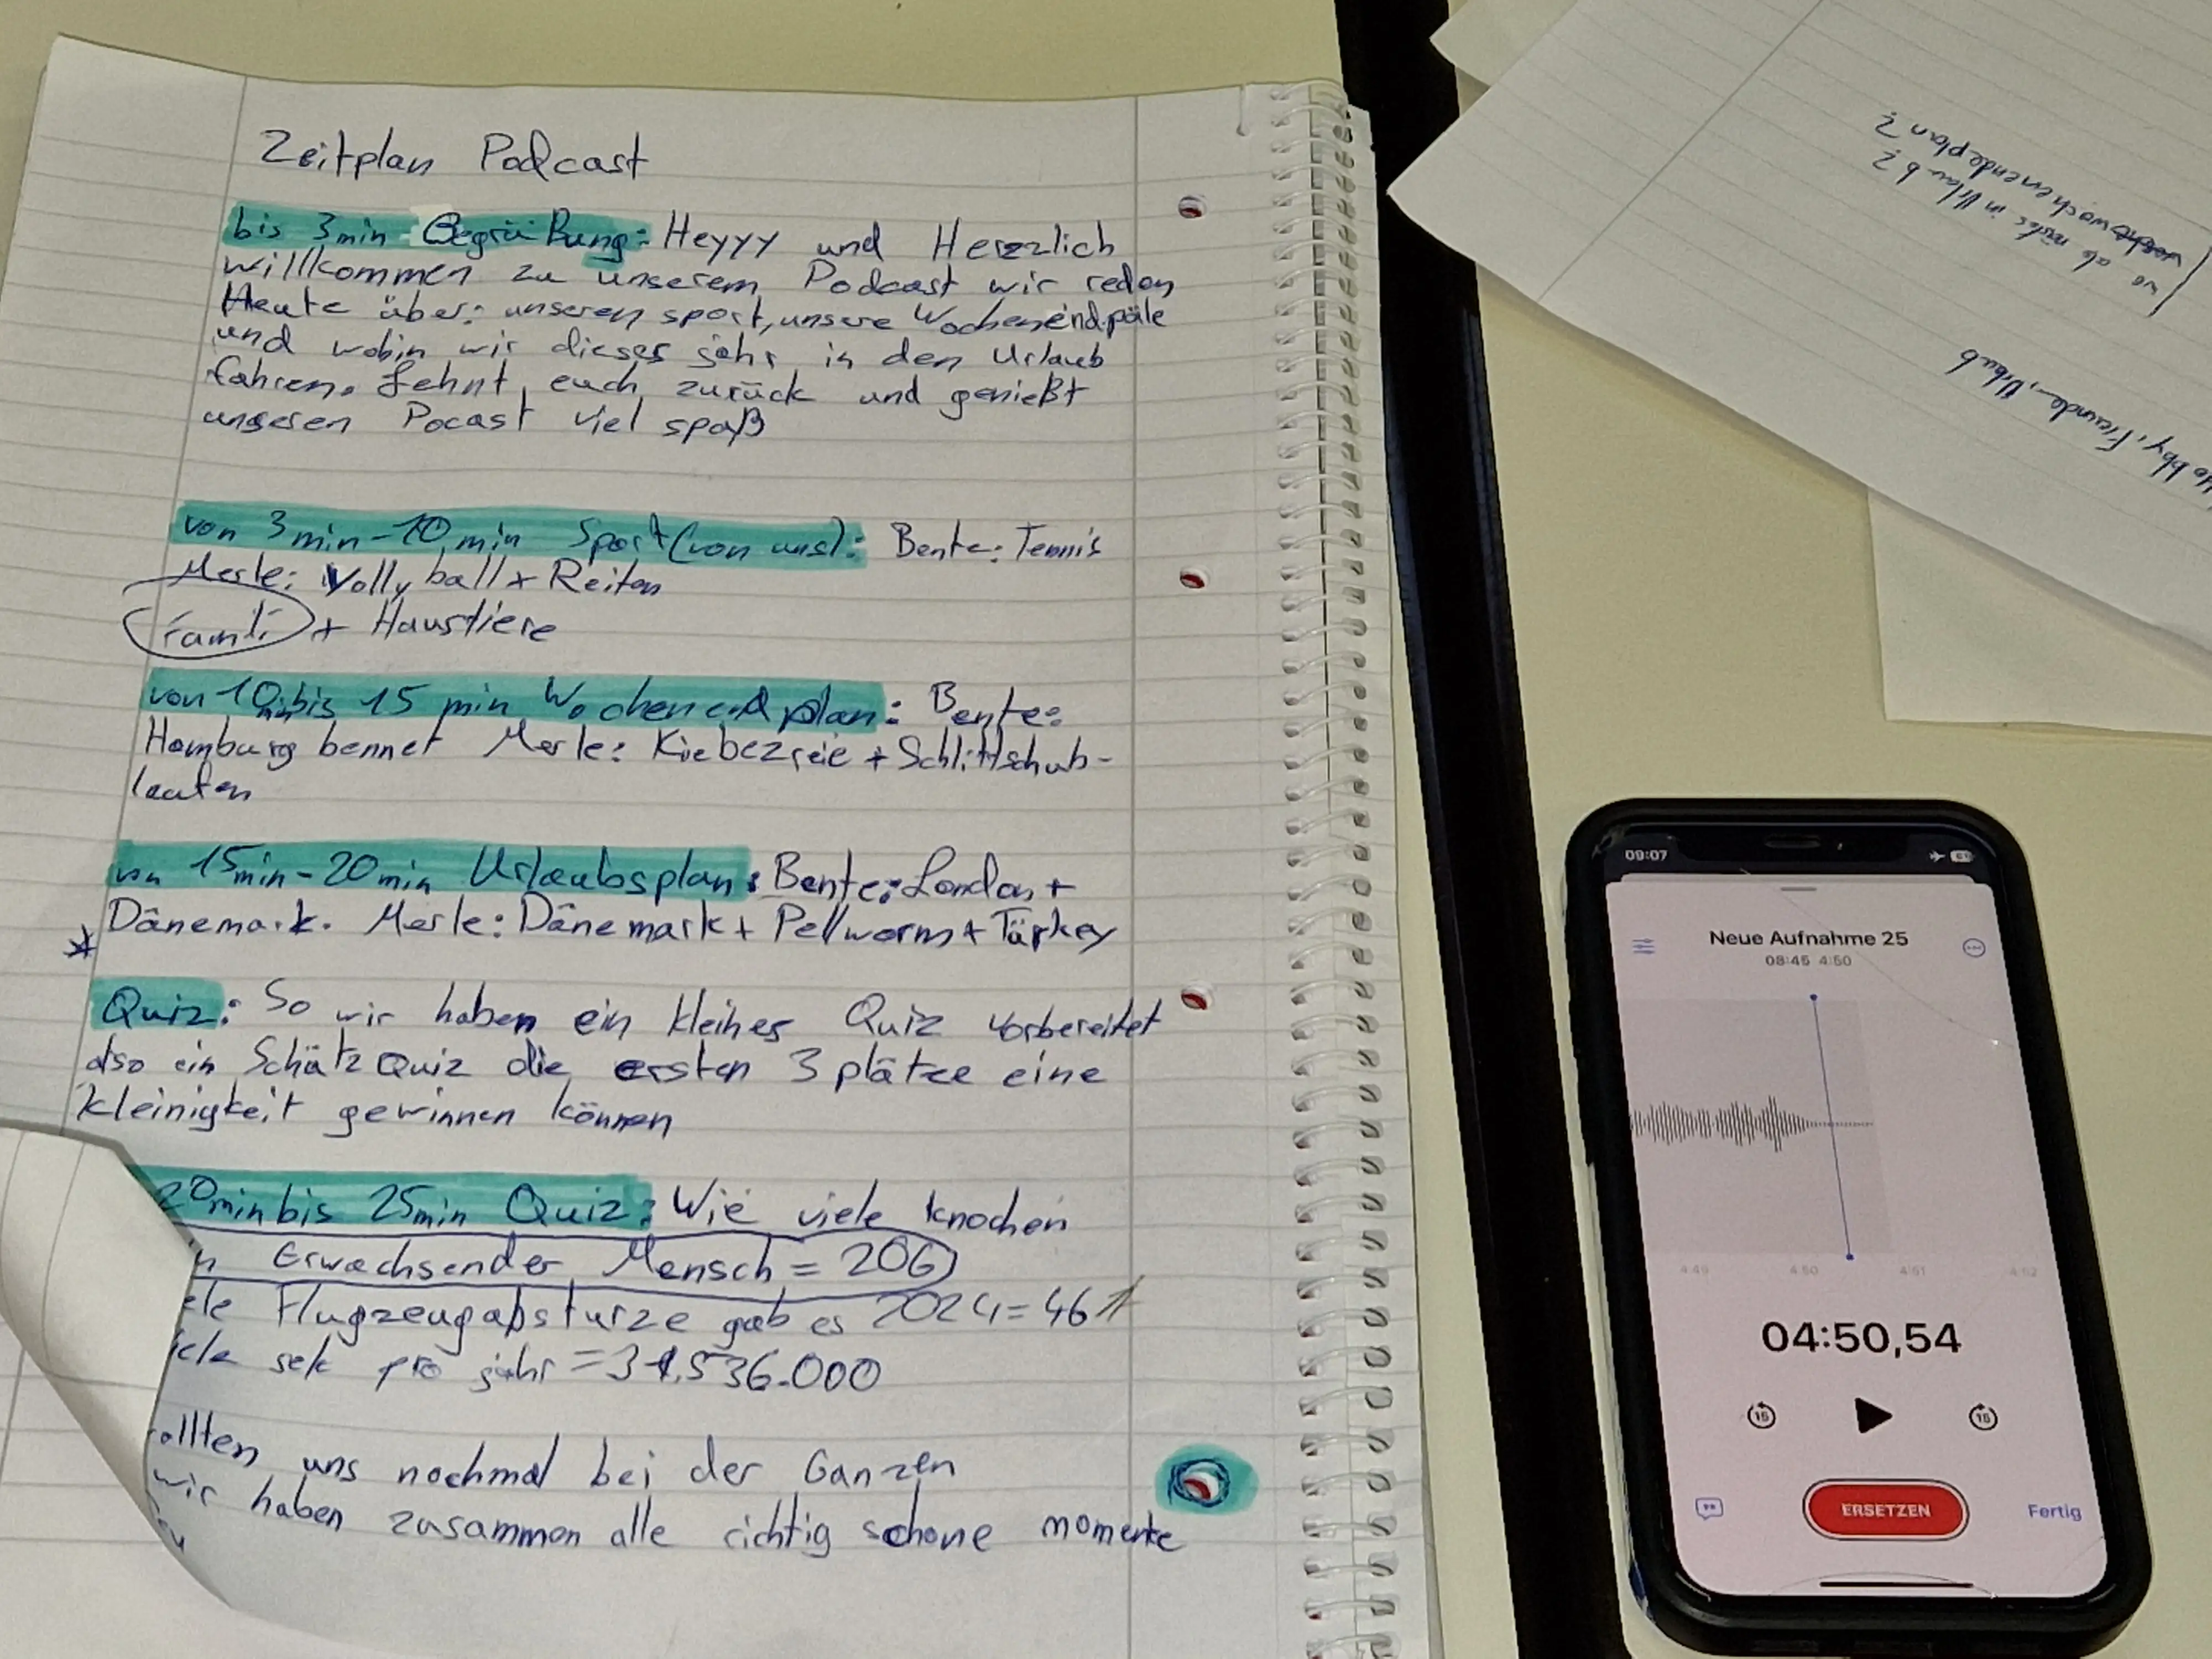 Zeitplan Podcast
bis 3min Begrüßung: Heyyy und Herzlich
willkommen zu unserem Podcast wir reden
Heute über: unseren sport, unsere Wochenendpäle
und wohin wir dieses jahr in den Urlaub
fahren. Lehnt euch zurück und genießt
unseren Pocast viel spaß
von 3min-10min Sport (von uns): Bente: Tennis
Merle: Vollyball + Reiten
Famili + Haustiere
von 10min bis 15 min Wochenendplan: Bente:
Hamburg bennet Merle: Kiebezreie + Schlittschuh-
laufen
von 15min-20min Urlaubsplan: Bente: London +
Dänemark. Merle: Dänemark + Pellworm + Türkey
Quiz: So wir haben ein kleines Quiz vorbereitet
also ein Schätz Quiz die ersten 3 plätze eine
kleinigkeit gewinnen können
20min bis 25min Quiz: Wie viele knochen
Erwachsender Mensch = 206
Flugzeugabsturze gab es 2024 = 461
sek pro jahr = 31.536.000
uns nochmal bei der Ganzen
wir haben zusammen alle richtig schöne momente
wochenendeplan?
wo ab nächs in Urlaub?
Hobby, Freunde, Urlaub
09:07
Neue Aufnahme 25
08:45 4:50
4:49 4:50 4:51 4:52
04:50,54
15 15
ERSETZEN
Fertig